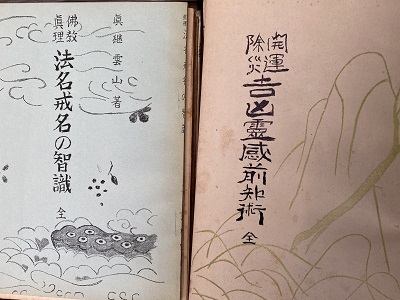 開運
除災
吉凶靈感前知術
全
眞繼雲山著
佛教
眞理
法名戒名の智識
全